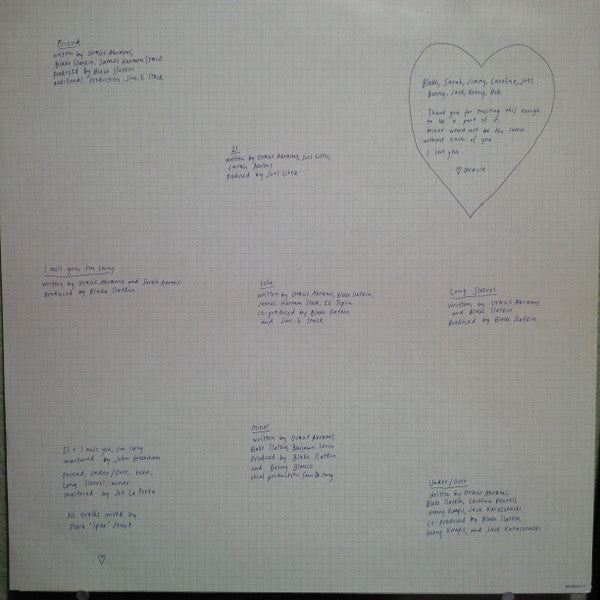 Friend
written by Gracie Abrams,
Blake Slatkin, James Harmon Stack
Produced by Blake Slatkin
additional production Jim-E Stack
Blake, Sarah, Jimmy, Caroline, Joel,
Benny, Jack, Henry, Rob,
Thank you for trusting this enough
to be a part of it.
minor would not be the same
without each of you
I love you
♡ Gracie
21
written by Gracie Abrams, Joel Little,
Sarah Aarons
Produced by Joel Little
I miss you, I'm sorry
written by Gracie Abrams and Sarah Aarons
Produced by Blake Slatkin
tehe
written by Gracie Abrams, Blake Slatkin,
James Harmon Stack, Eli Teplin
co-produced by Blake Slatkin
and Jim-E Stack
Long Sleeves
written by Gracie Abrams
and Blake Slatkin
Produced by Blake Slatkin
21 + I miss you, I'm sorry
mastered by John Greenham
Friend, Under/Over, tehe,
Long Sleeves, minor
mastered by Joe La Porta
All tracks mixed by
Mark "Spike" Stent
♡
Minor
written by Gracie Abrams,
Blake Slatkin, Benjamin Levin
Produced by Blake Slatkin
and Benny Blanco
vocal production
Under/Over
written by Gracie Abrams,
Blake Slatkin, Caroline Pennell,
Henry Kwapis, Jack Karaszewski
Co-produced by Blake Slatkin,
Henry Kwapis, and Jack Karaszewski